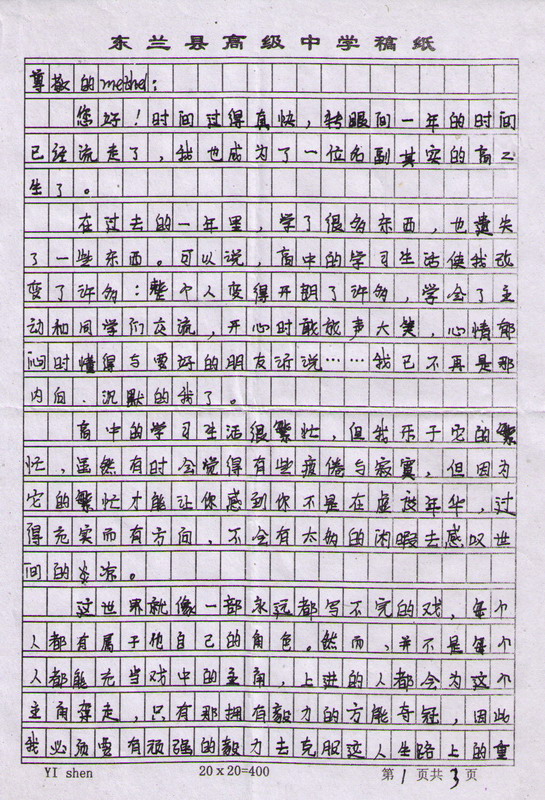 东兰县高级中学稿纸
尊敬的
您好！时间过得真快，转眼间一年的时间
已经流走了，我也成为了一位名副其实的高二
生了。
在过去的一年里，学了很多东西，也遗失
了一些东西。可以说，高中的学习生活使我改
变了许多：整个人变得开朗了许多，学会了主
动和同学们交流，开心时敢放声大笑，心情郁
闷时懂得与要好的朋友诉说……我已不再是那
内向、沉默的我了。
高中的学习生活很繁忙，但我乐于它的繁
忙，虽然有时会觉得有些疲倦与寂寞，但因为
它的繁忙才能让你感到你不是在虚度年华，过
得充实而有方向，不会有太多的闲暇去感叹世
间的炎凉。
这世界就像一部永远都写不完的戏，每个
人都有属于他自己的角色。然而，并不是每个
人都能充当戏中的主角，上进的人都会为这个
主角奔走，只有那拥有毅力的方能夺冠，因此
我必须要有顽强的毅力去克服这人生路上的重
YI shen 20x20=400 第1页共3页